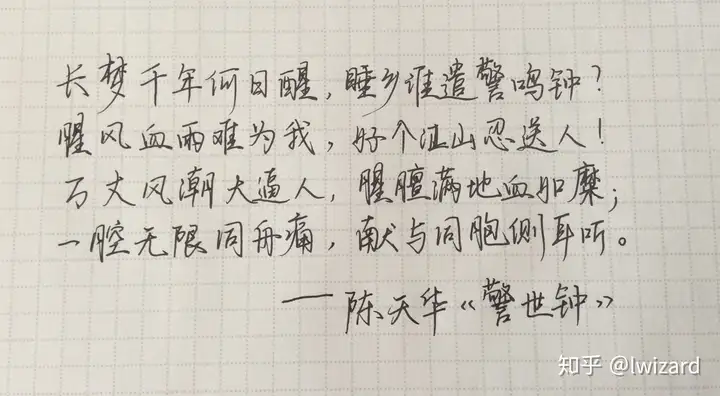 长梦千年何日醒，睡乡谁遣警鸣钟？
腥风血雨难为我，好个江山忍送人！
万丈风潮大逼人，腥膻满地血如糜；
一腔无限同舟痛，献与同胞侧耳听。
——陈天华《警世钟》
知乎 @lwizard